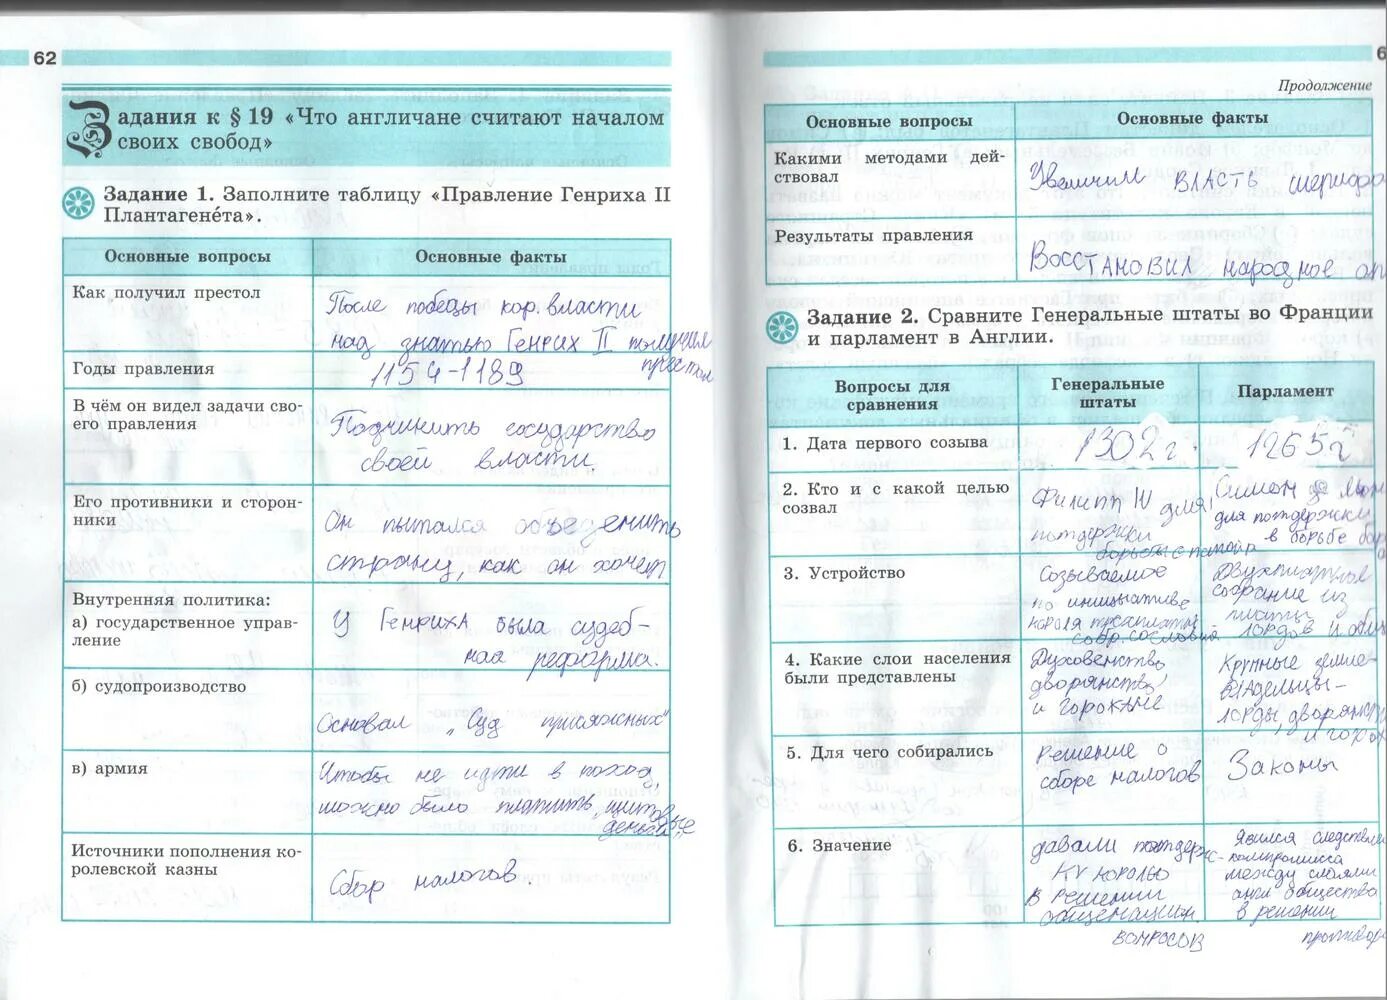 62
Задания к § 19 «Что англичане считают началом
своих свобод»
Задание 1. Заполните таблицу «Правление Генриха II
Плантагене́та».
Основные вопросы
Основные факты
Как получил престол
После победы кор. власти
над знатью Генрих II получил
престол
Годы правления
1154-1189
В чём он видел задачи сво-
его правления
Подчинить государство
своей власти
Его противники и сторон-
ники
Он пытался объеденить
страну, как он хочет
Внутренняя политика:
а) государственное управ-
ление
У Генриха была судеб-
ная реформа.
б) судопроизводство
Основал „Суд присяжных"
в) армия
Чтобы не идти в поход,
можно было платить „щитовые
деньги"
Источники пополнения ко-
ролевской казны
Сбор налогов.
6
Продолжение
Основные вопросы
Основные факты
Какими методами дей-
ствовал
Увеличил власть шерифо
Результаты правления
Восстановил народное оп
Задание 2. Сравните Генеральные штаты во Франции
и парламент в Англии.
Вопросы для
сравнения
Генеральные
штаты
Парламент
1. Дата первого созыва
1302 г.
1265 г
2. Кто и с какой целью
созвал
Филипп IV для
потдержки
борьбы с папой
Симон де Мон
для потдержки
в борьбе
3. Устройство
Созываемое
по инициативе
короля
собр. сословий
Двухпалатное
собрание из
палаты
лордов и общ
4. Какие слои населения
были представлены
Духовенство
дворянство
и горожане
Крупные земле-
владельцы-
лорды, дворяне
и горож
5. Для чего собирались
Решение о
сборе налогов
Законы
6. Значение
давали потдерж-
ку королю
в решении
общенацион.
вопросов
Явился следствием
компромисса
между слоями
англ общества
в решении
противор